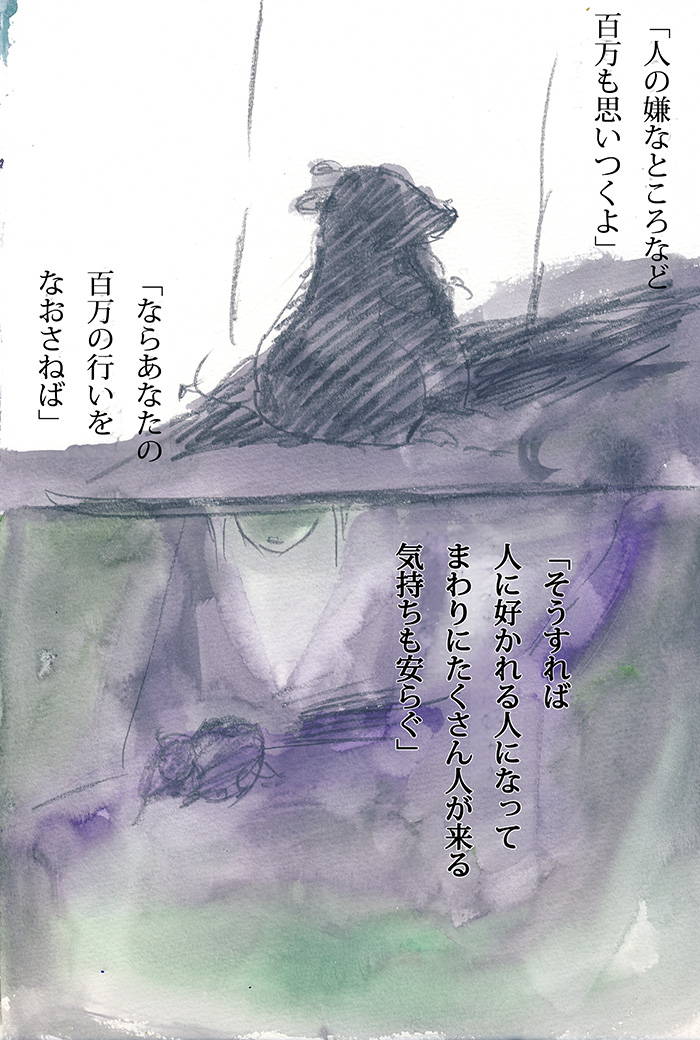 「人の嫌なところなど
百万も思いつくよ」
「ならあなたの
百万の行いを
なおさねば」
「そうすれば
人に好かれる人になって
まわりにたくさん人が来る
気持ちも安らぐ」